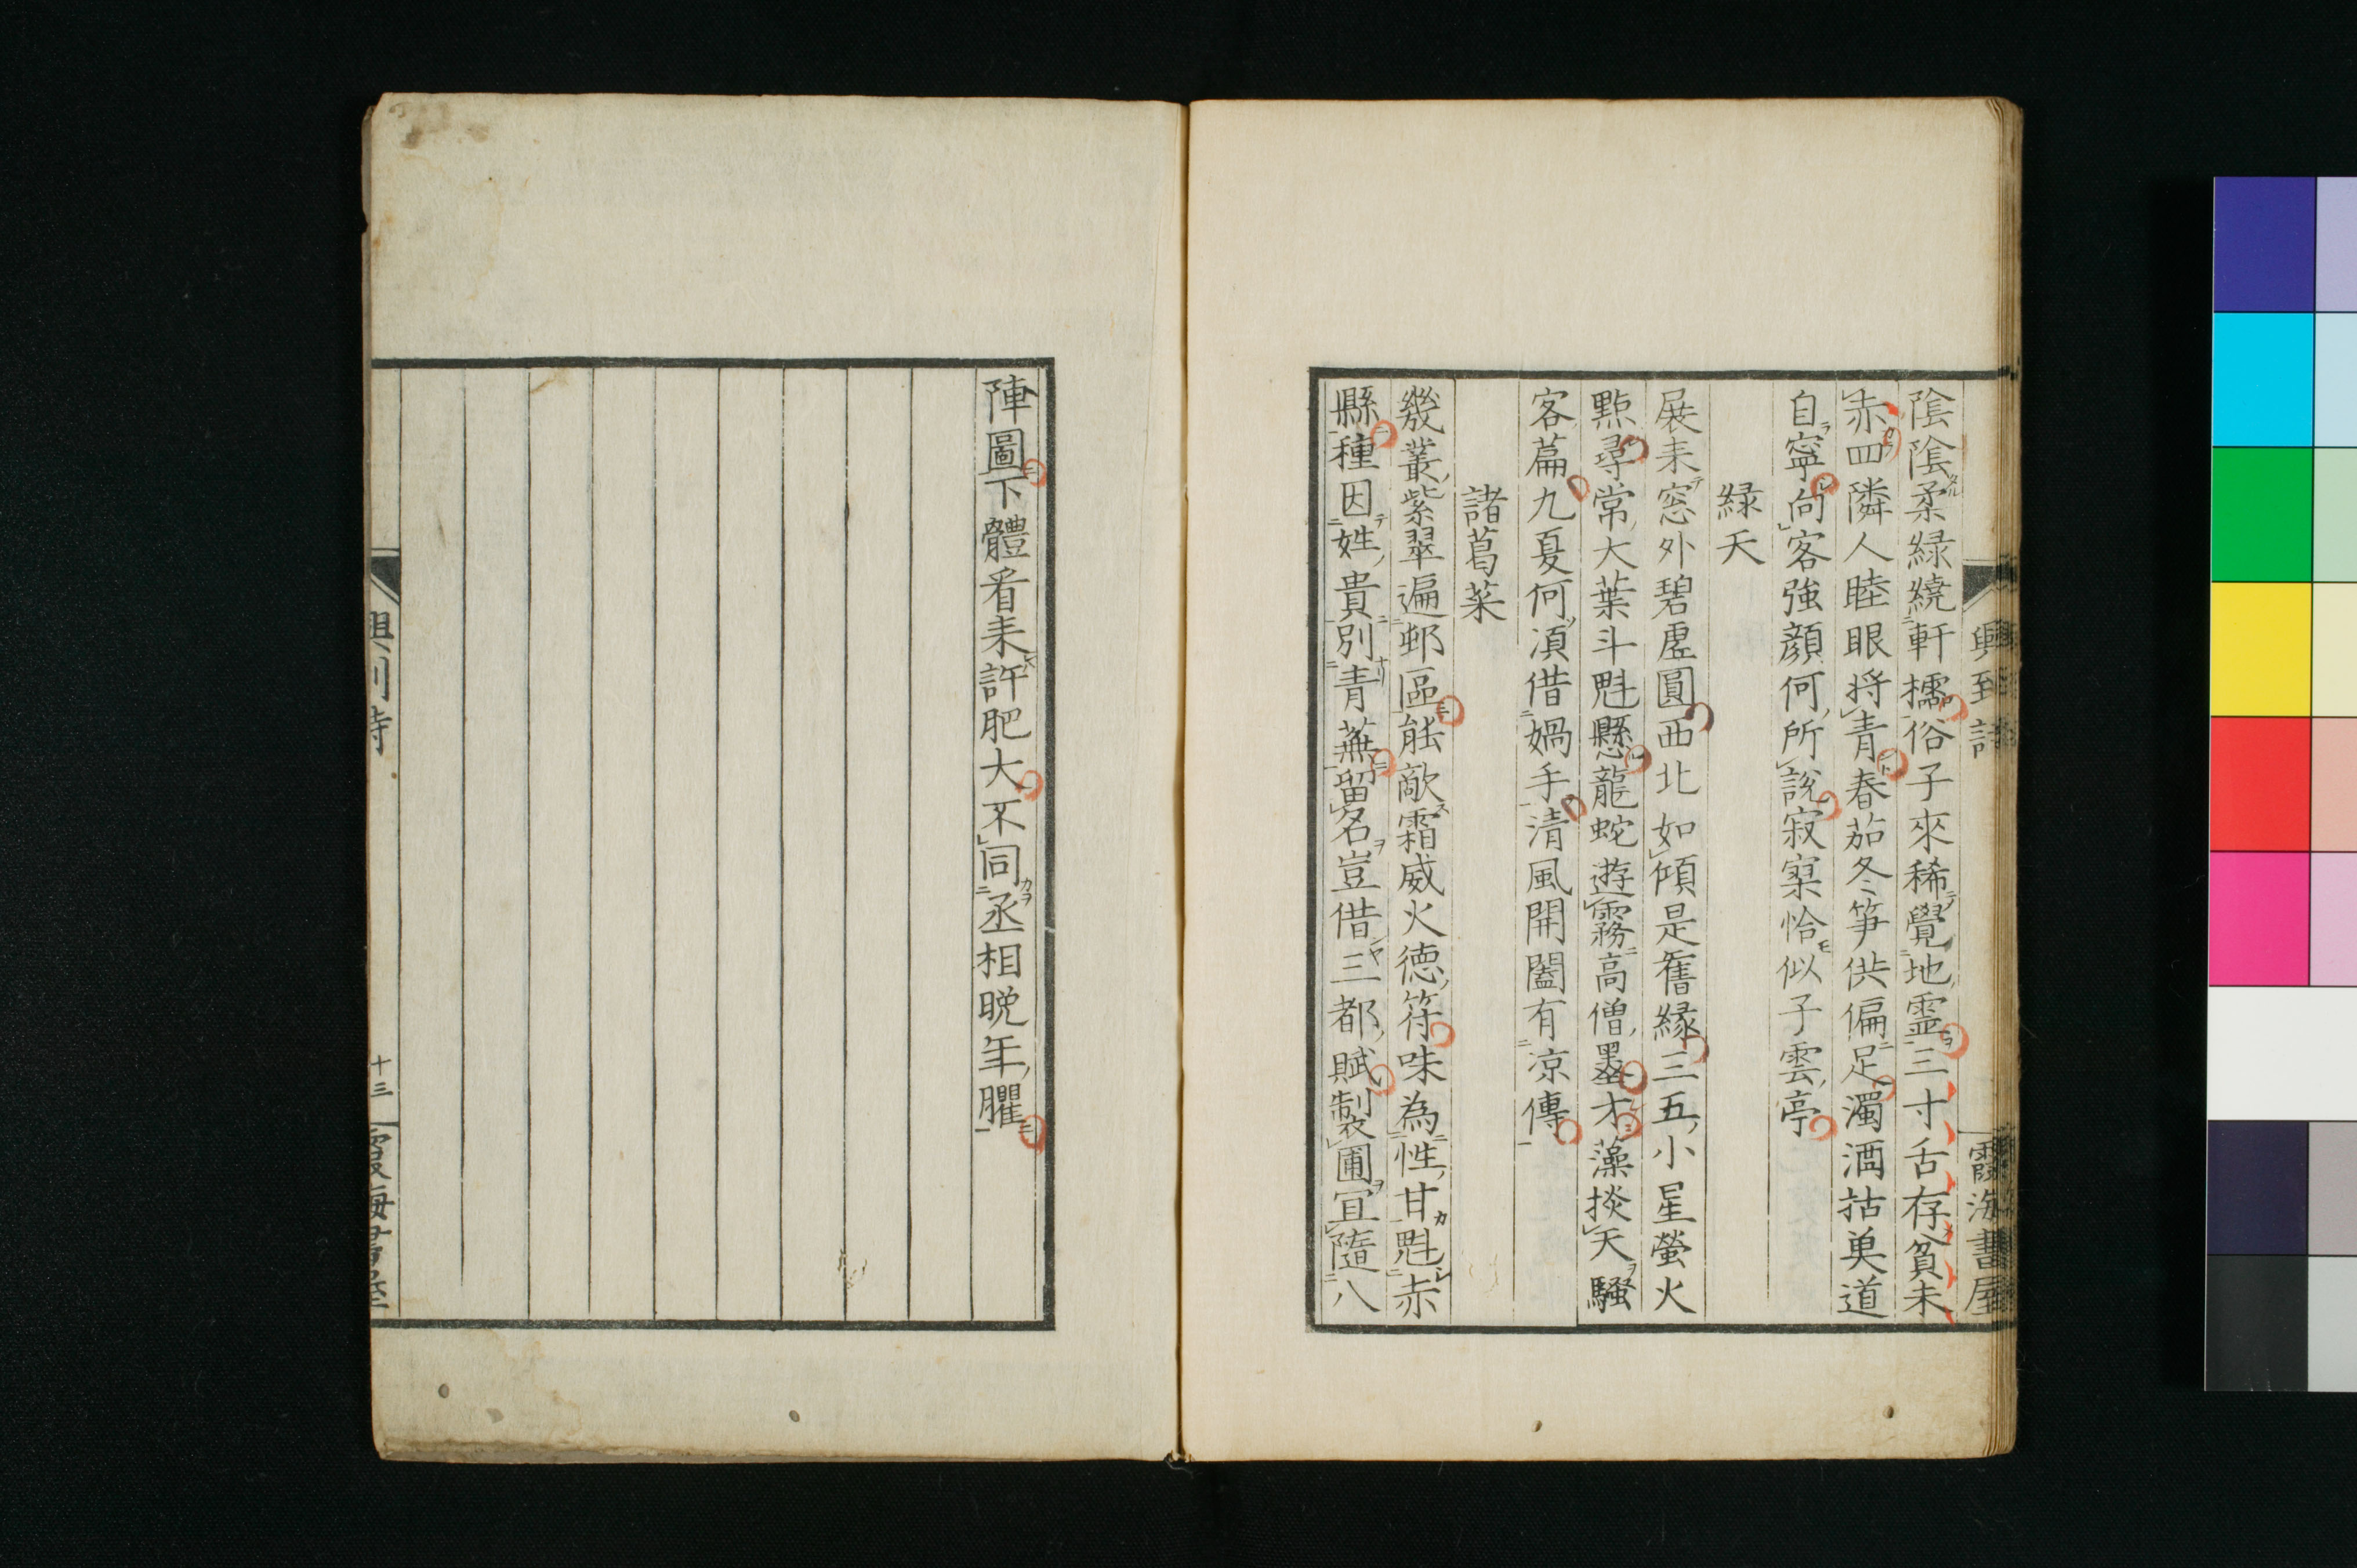 興到詩
霞海書屋
陰陰柔緑繞軒擩俗子來稀覺地霊三寸舌存貧未
赤四隣人睦眼将青春茄冬笋供偏足濁酒詁奠道
自寧向客強顔何所說寂寞恰似子雲亭
緑天
展耒窓外碧虗圓西北如傾是舊縁三五小星螢火
點尋常大葉斗魁懸龍蛇遊霧高僧墨才藻掞天騷
客篇九夏何湏借媧手清風開闔有凉傳
諸葛菜
幾叢紫翠遍邨區能敵霜威火德符味為性甘魁赤
縣種因姓貴別青蕪留名豈借三都賦製圃冝隨八
陣圖下體看耒許肥大不同丞相晩年臞
十三